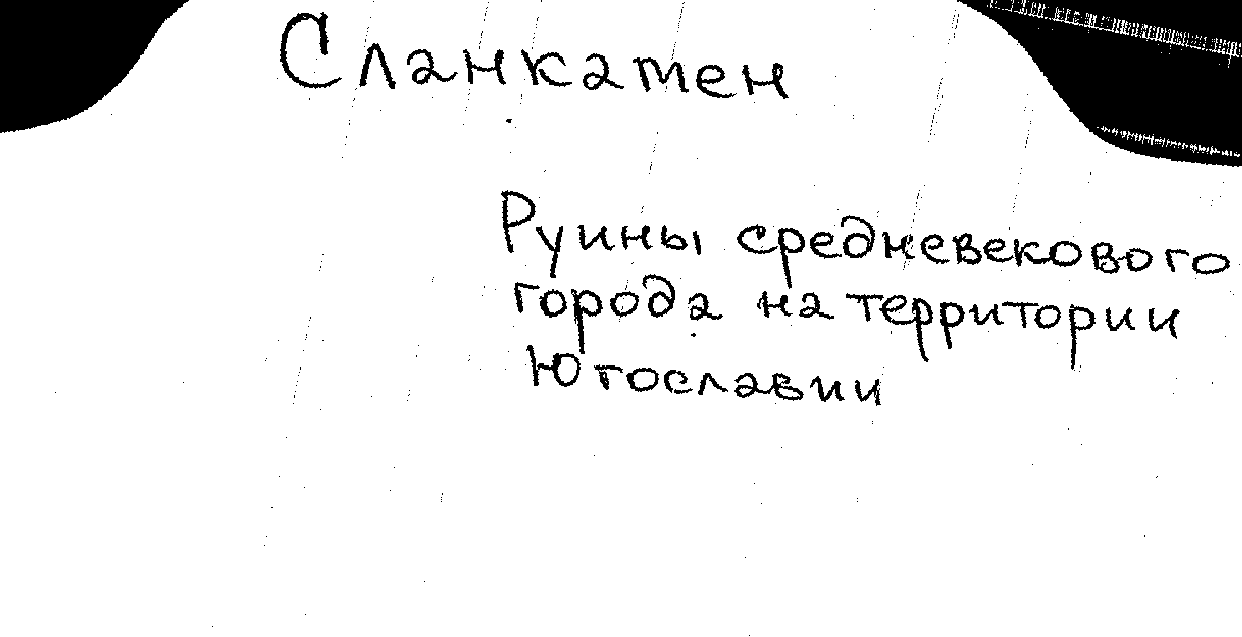 Сланкатен
Руины средневекового
города на территории
Югославии